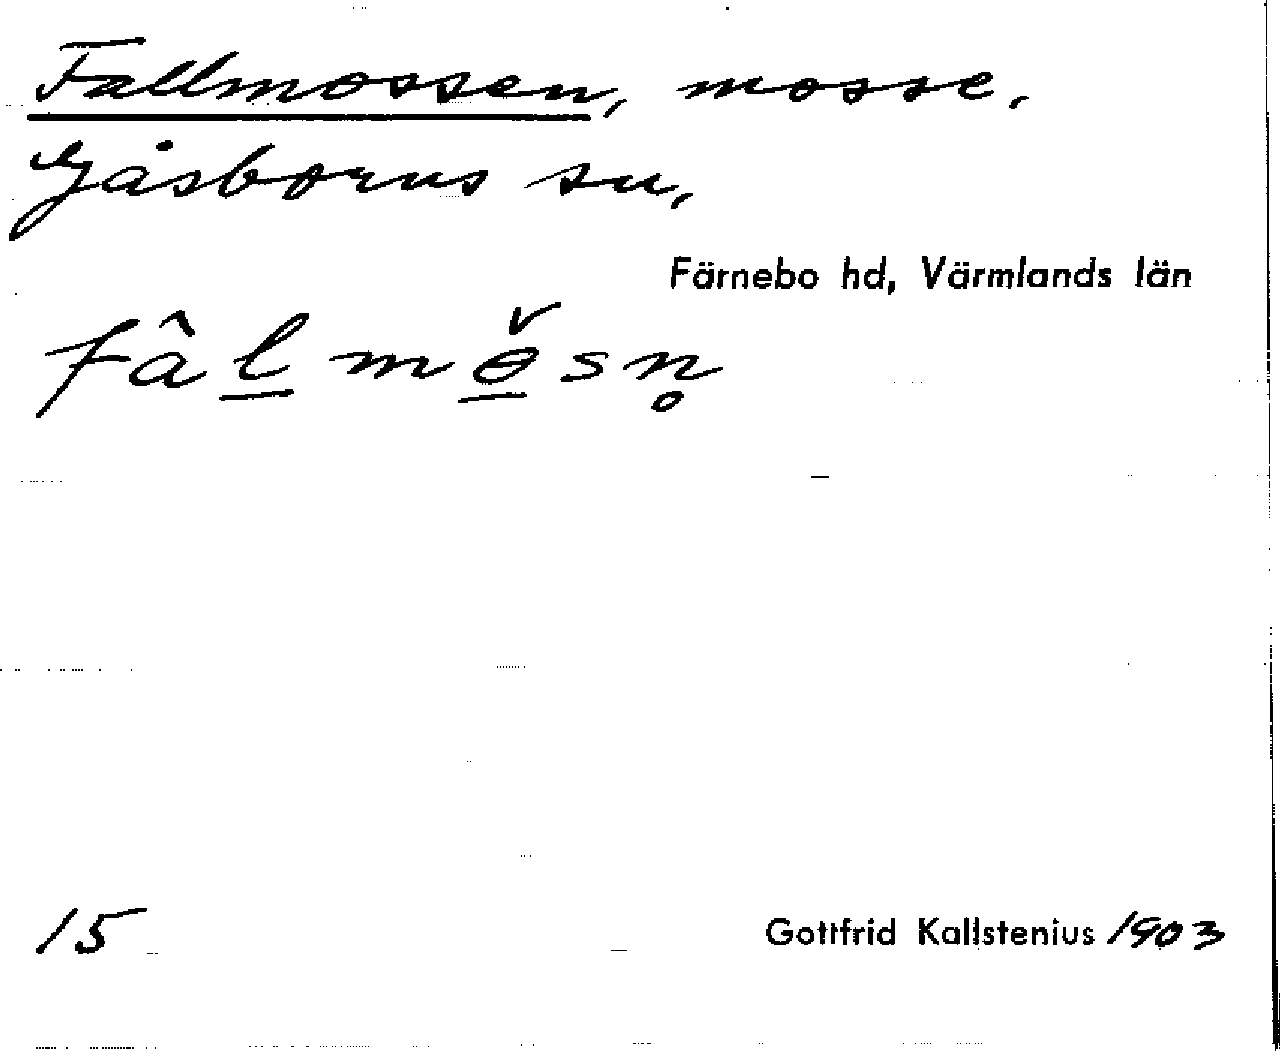 Fallmossen, mosse.
Gåsborns sn,
Färnebo hd, Värmlands län
fâl̲mɵ̲̌sn̥
15
Gottfrid Kallstenius 1903